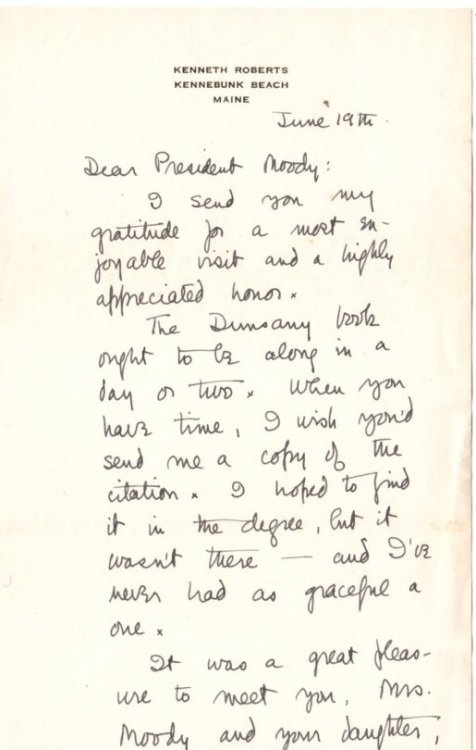 KENNETH ROBERTS
KENNEBUNK BEACH
MAINE
June 19th.
Dear President Moody:
I send you my
gratitude for a most en-
joyable visit and a highly
appreciated honor.
The Dunsany book
ought to be along in a
day or two. When you
have time, I wish you'd
send me a copy of the
citation. I hoped to find
it in the degree, but it
wasn't there — and I've
never had as graceful a
one.
It was a great pleas-
ure to meet you, Mrs.
Moody and your daughter,